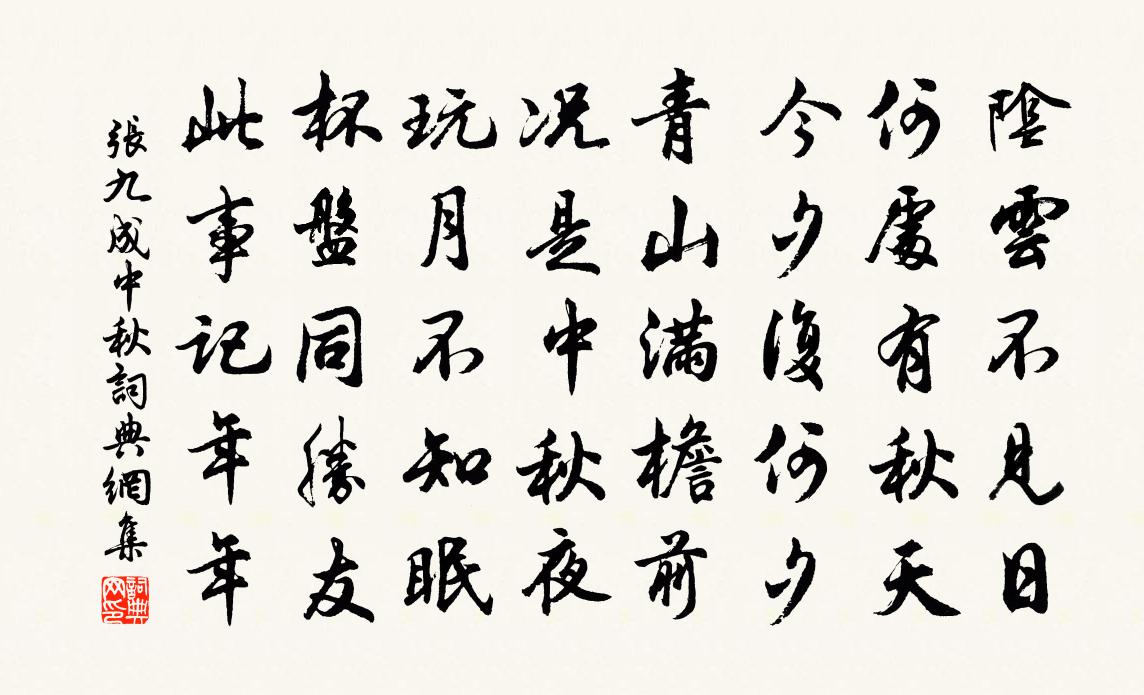 陰雲不見日
何處有秋天
今夕復何夕
青山滿檐前
況是中秋夜
玩月不知眠
杯盤同勝友
此事記年年
張九成中秋詞典網集
詞典網印